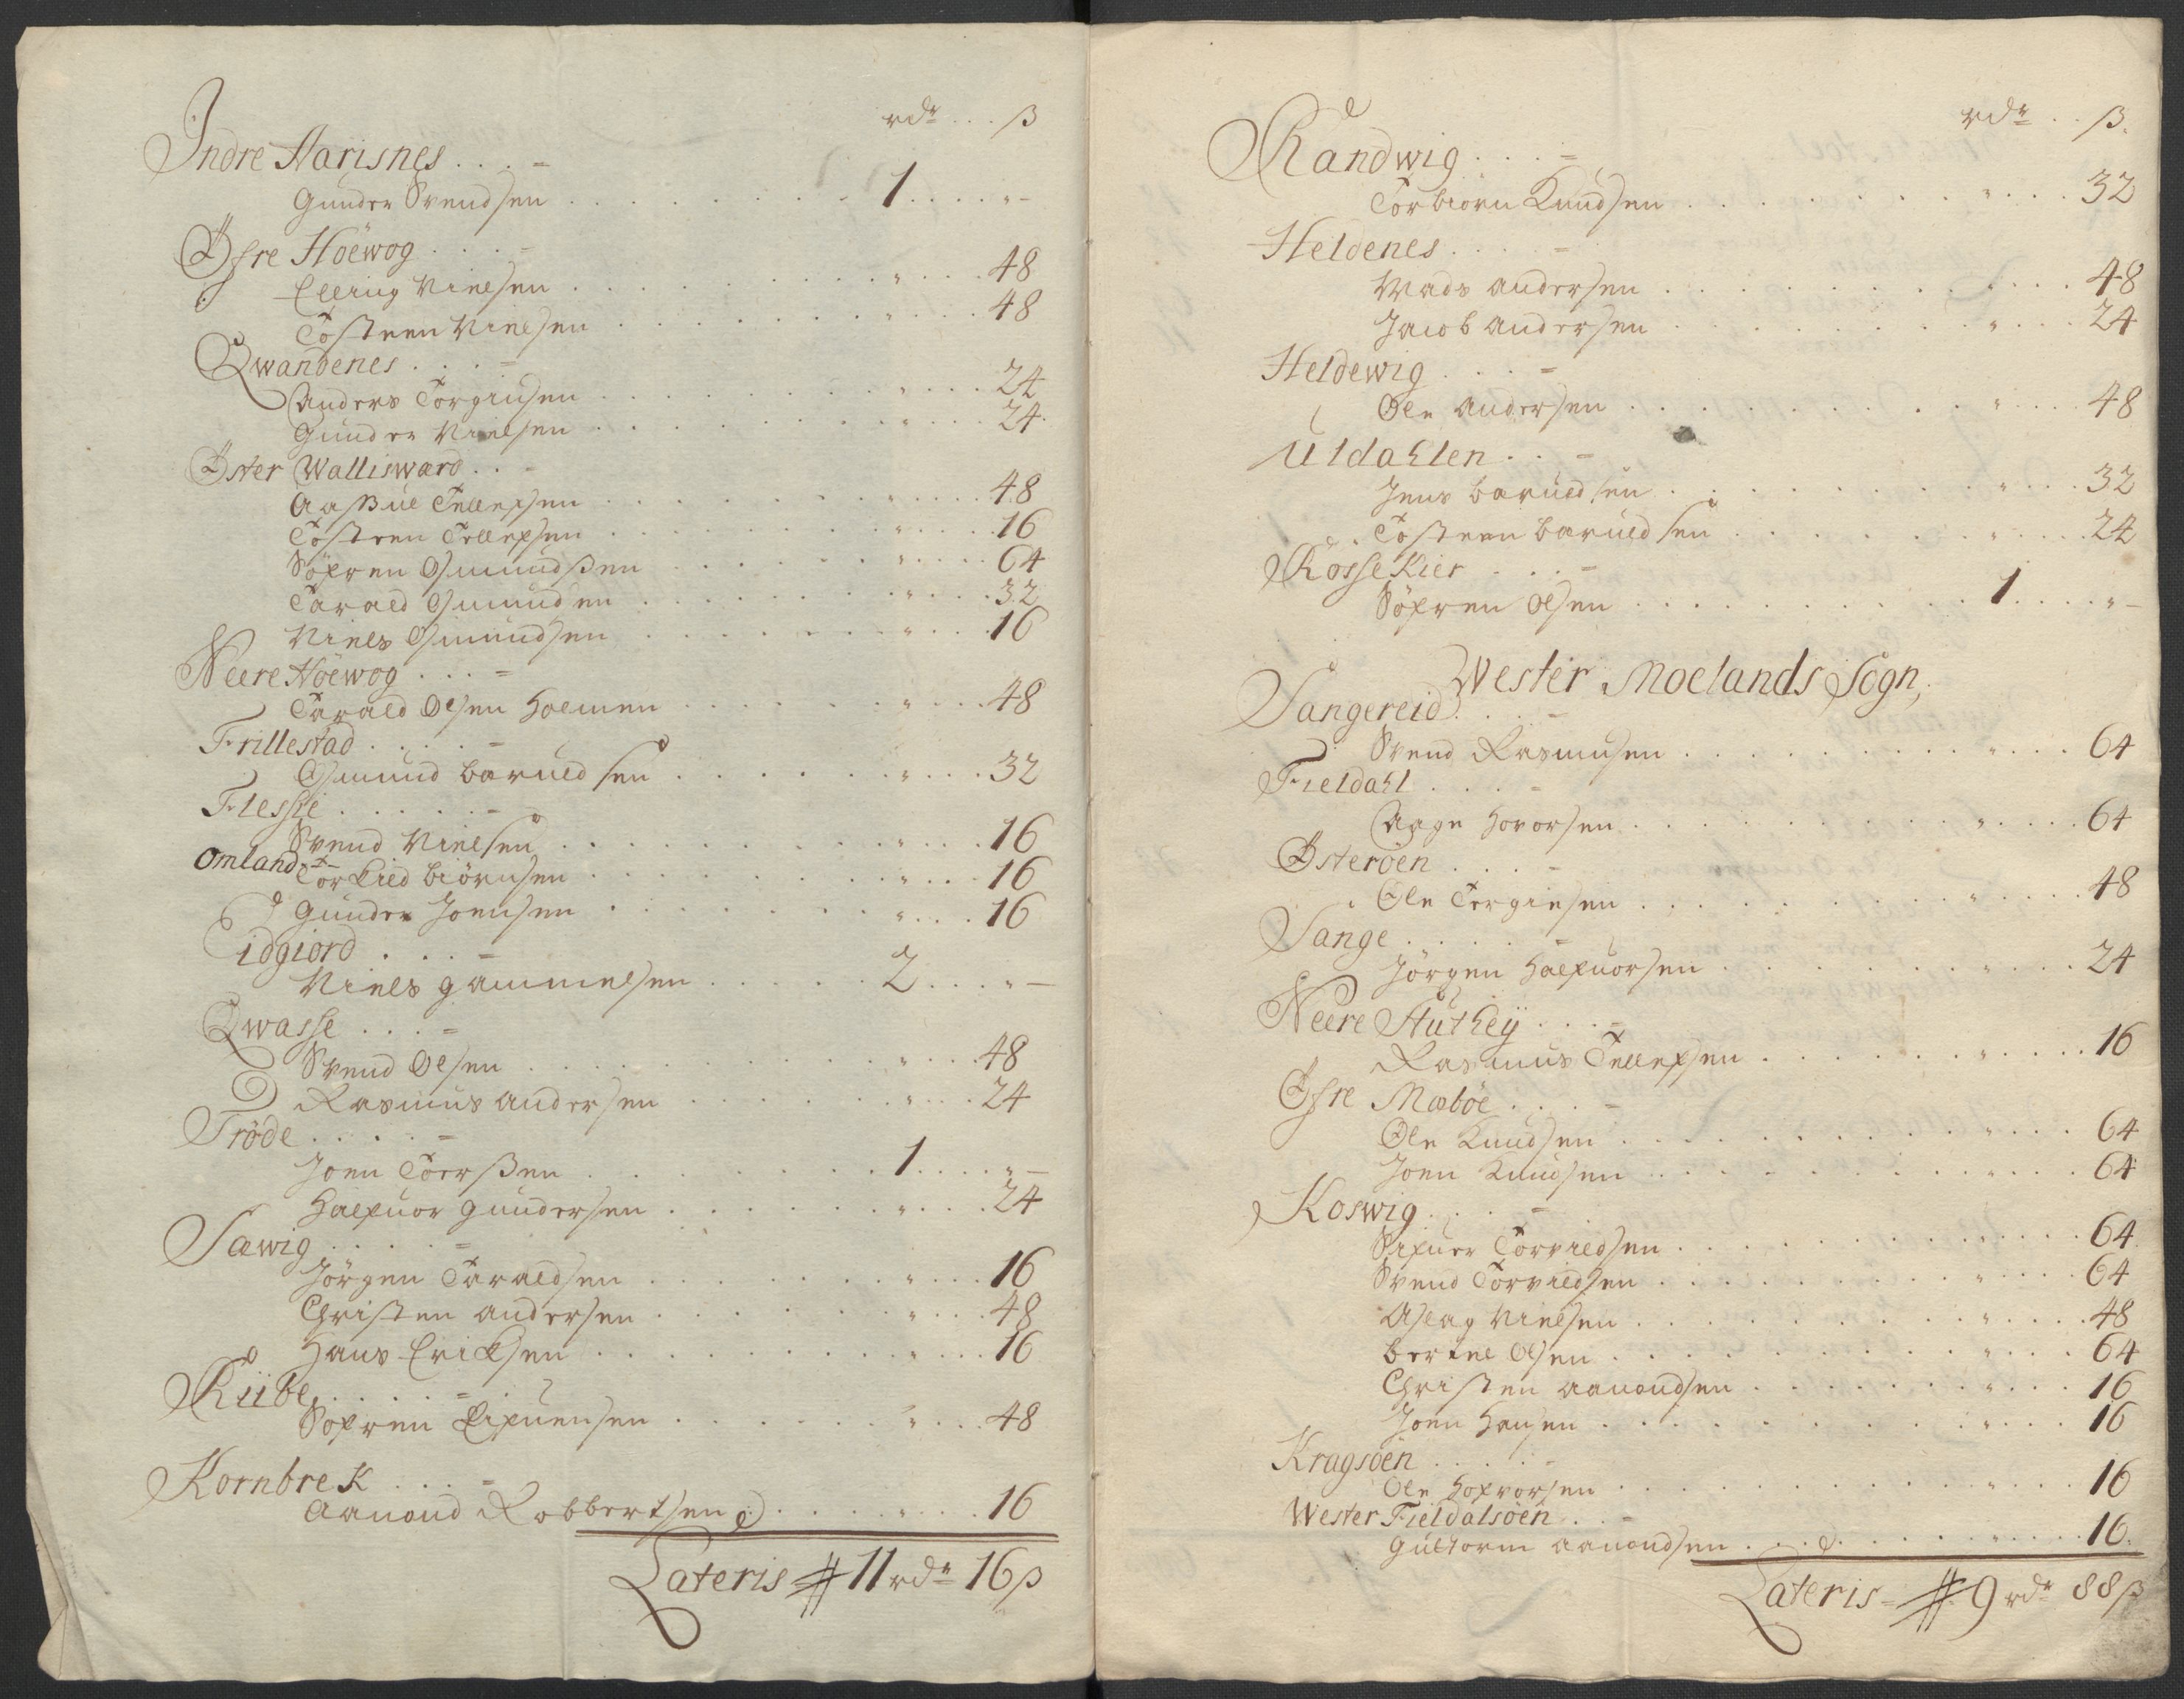 rdr . . . ß
Indre Aarisnes . . . =
Gunder Svendsen . . . . . . . 1 . . . . " –
Øfre Höewog . . . . =
Elling Nielsen . . . . . . . " . . . 48
Tosteen Nielsen . . . . . . . " . . . 48
Qwandenes . . . =
Anders Torgiusen . . . . . . . " . . . 24
Gunder Nielsen . . . . . . . " . . . 24
Øster Wallisward . . =
Aasbul Tellefsen . . . . . . . " . . . 48
Tosteen Tellefsen . . . . . . . " . . . 16
Söfren Osmundsen . . . . . . . " . . . 64
Tarald Osmunden . . . . . . . " . . . 32
Niels Osmundsen . . . . . . . " . . . 16
Neere Höewog . . . =
Tarald Olsen Holmen . . . . . . . " . . . 48
Frillestad . . . . =
Osmund baruldsen . . . . . . . " . . . 32
Flessie . . . . . =
Svend Nielsen . . . . . . . " . . . 16
Omland . =
Torkild biörnsen . . . . . . . " . . . 16
Gunder Joensen . . . . . . . " . . . 16
Eidgiord . . . =
Niels gammelsen . . . . . 2 . . . " –
Qwasse . . . =
Svend Olsen . . . . . . . " . . . 48
Rasmus Andersen . . . . . . . " . . . 24
Tröde . . . . =
Joen Toersen . . . . . . . 1 . . . . " –
Halfuor gundersen . . . . . . . " . . . 24
Sæwig . . . . =
Jörgen Taraldsen . . . . . . . " . . . 16
Christen Andersen . . . . . . . " . . . 48
Hans Ericksen . . . . . . . " . . . 16
Riibe . . . . = .
Sofren Eifuensen . . . . . . . " . . . 48
Kornbrek . . . =
Aanond Robbertsen . . . . . . . " . . . 16
Lateris # 11 rdr 16 ß
rdr . . ß.
Randwig . . . =
Torbiorn Knudsen . . . . . . . " . . . 32
Heldenes . . . . =
Mads Andersen . . . . . . . " . . . 48
Jacob Andersen . . . . . . . " . . . 24
Heldewig . . . . =
Ole Andersen . . . . . . . " . . . 48
Uldahlen . . =
Jens baruldsen . . . . . . . " . . . 32
Tosteen baruldsen . . . . . . . " . . . 24
Rosse Kier . . . =
Söfren Olsen . . . . . . . 1 . . . . " –
Wester Moelands Sogn,
Sangereid . . . =
Svend Rasmusen . . . . . . . " . . . 64
Fieldahl . . . . =
Aage Hovorsen . . . . . . . " . . . 64
Østeröen . . . =
Ole Torgiusen . . . . . . . " . . . 48
Sange . . . . . =
Jörgen Halfuorsen . . . . . . . " . . . 24
Neere Autheÿ . . . =
Rasmus Tellefsen . . . . . . . " . . . 16
Øfre Mæböe . . . =
Ole Knudsen . . . . . . . " . . . 64
Joen Knudsen . . . . . . . " . . . 64
Koswig . . . . =
Sifuer Torvildsen . . . . . . . " . . . 64
Svend Torvildsen . . . . . . . " . . . 64
Aslag Nielsen . . . . . . . " . . . 48
bertel Olsen . . . . . . . " . . . 64
Christen Aanondsen . . . . . . . " . . . 16
Joen Hansen . . . . . . . " . . . 16
Kragsöen . . . . =
Ole Hofvorsen . . . . . . . " . . . 16
Wester Fieldalsöen . . =
gultorm Aanondsen . . . . . . . " . . . 16.
Lateris = # 9 rdr 88 ß